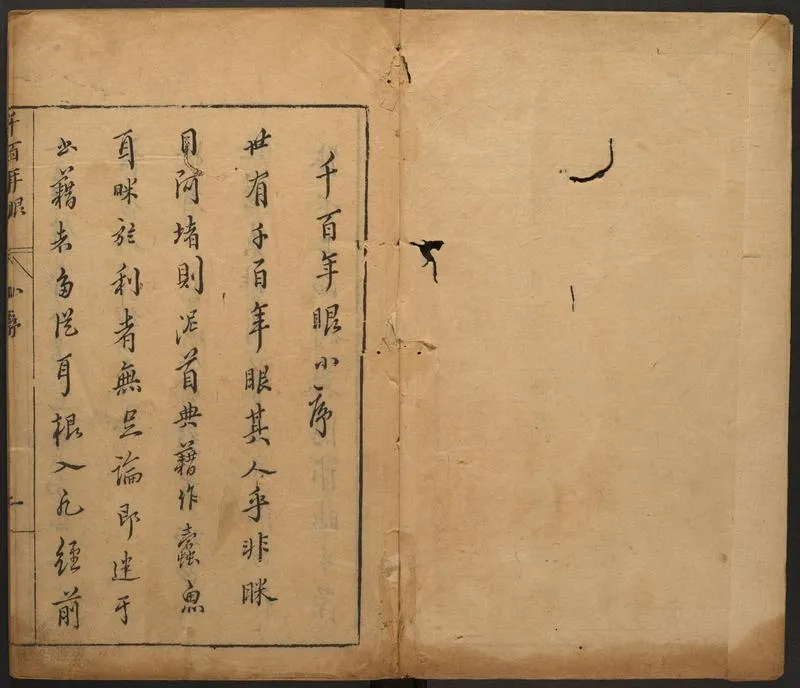 千百年眼小序
世有千百年眼其人乎非眯
目阿堵則泥首典籍作蠹魚
耳眯於利者無足論即迷于
書籍者多從耳根入凡經前
千百年眼
小序
一